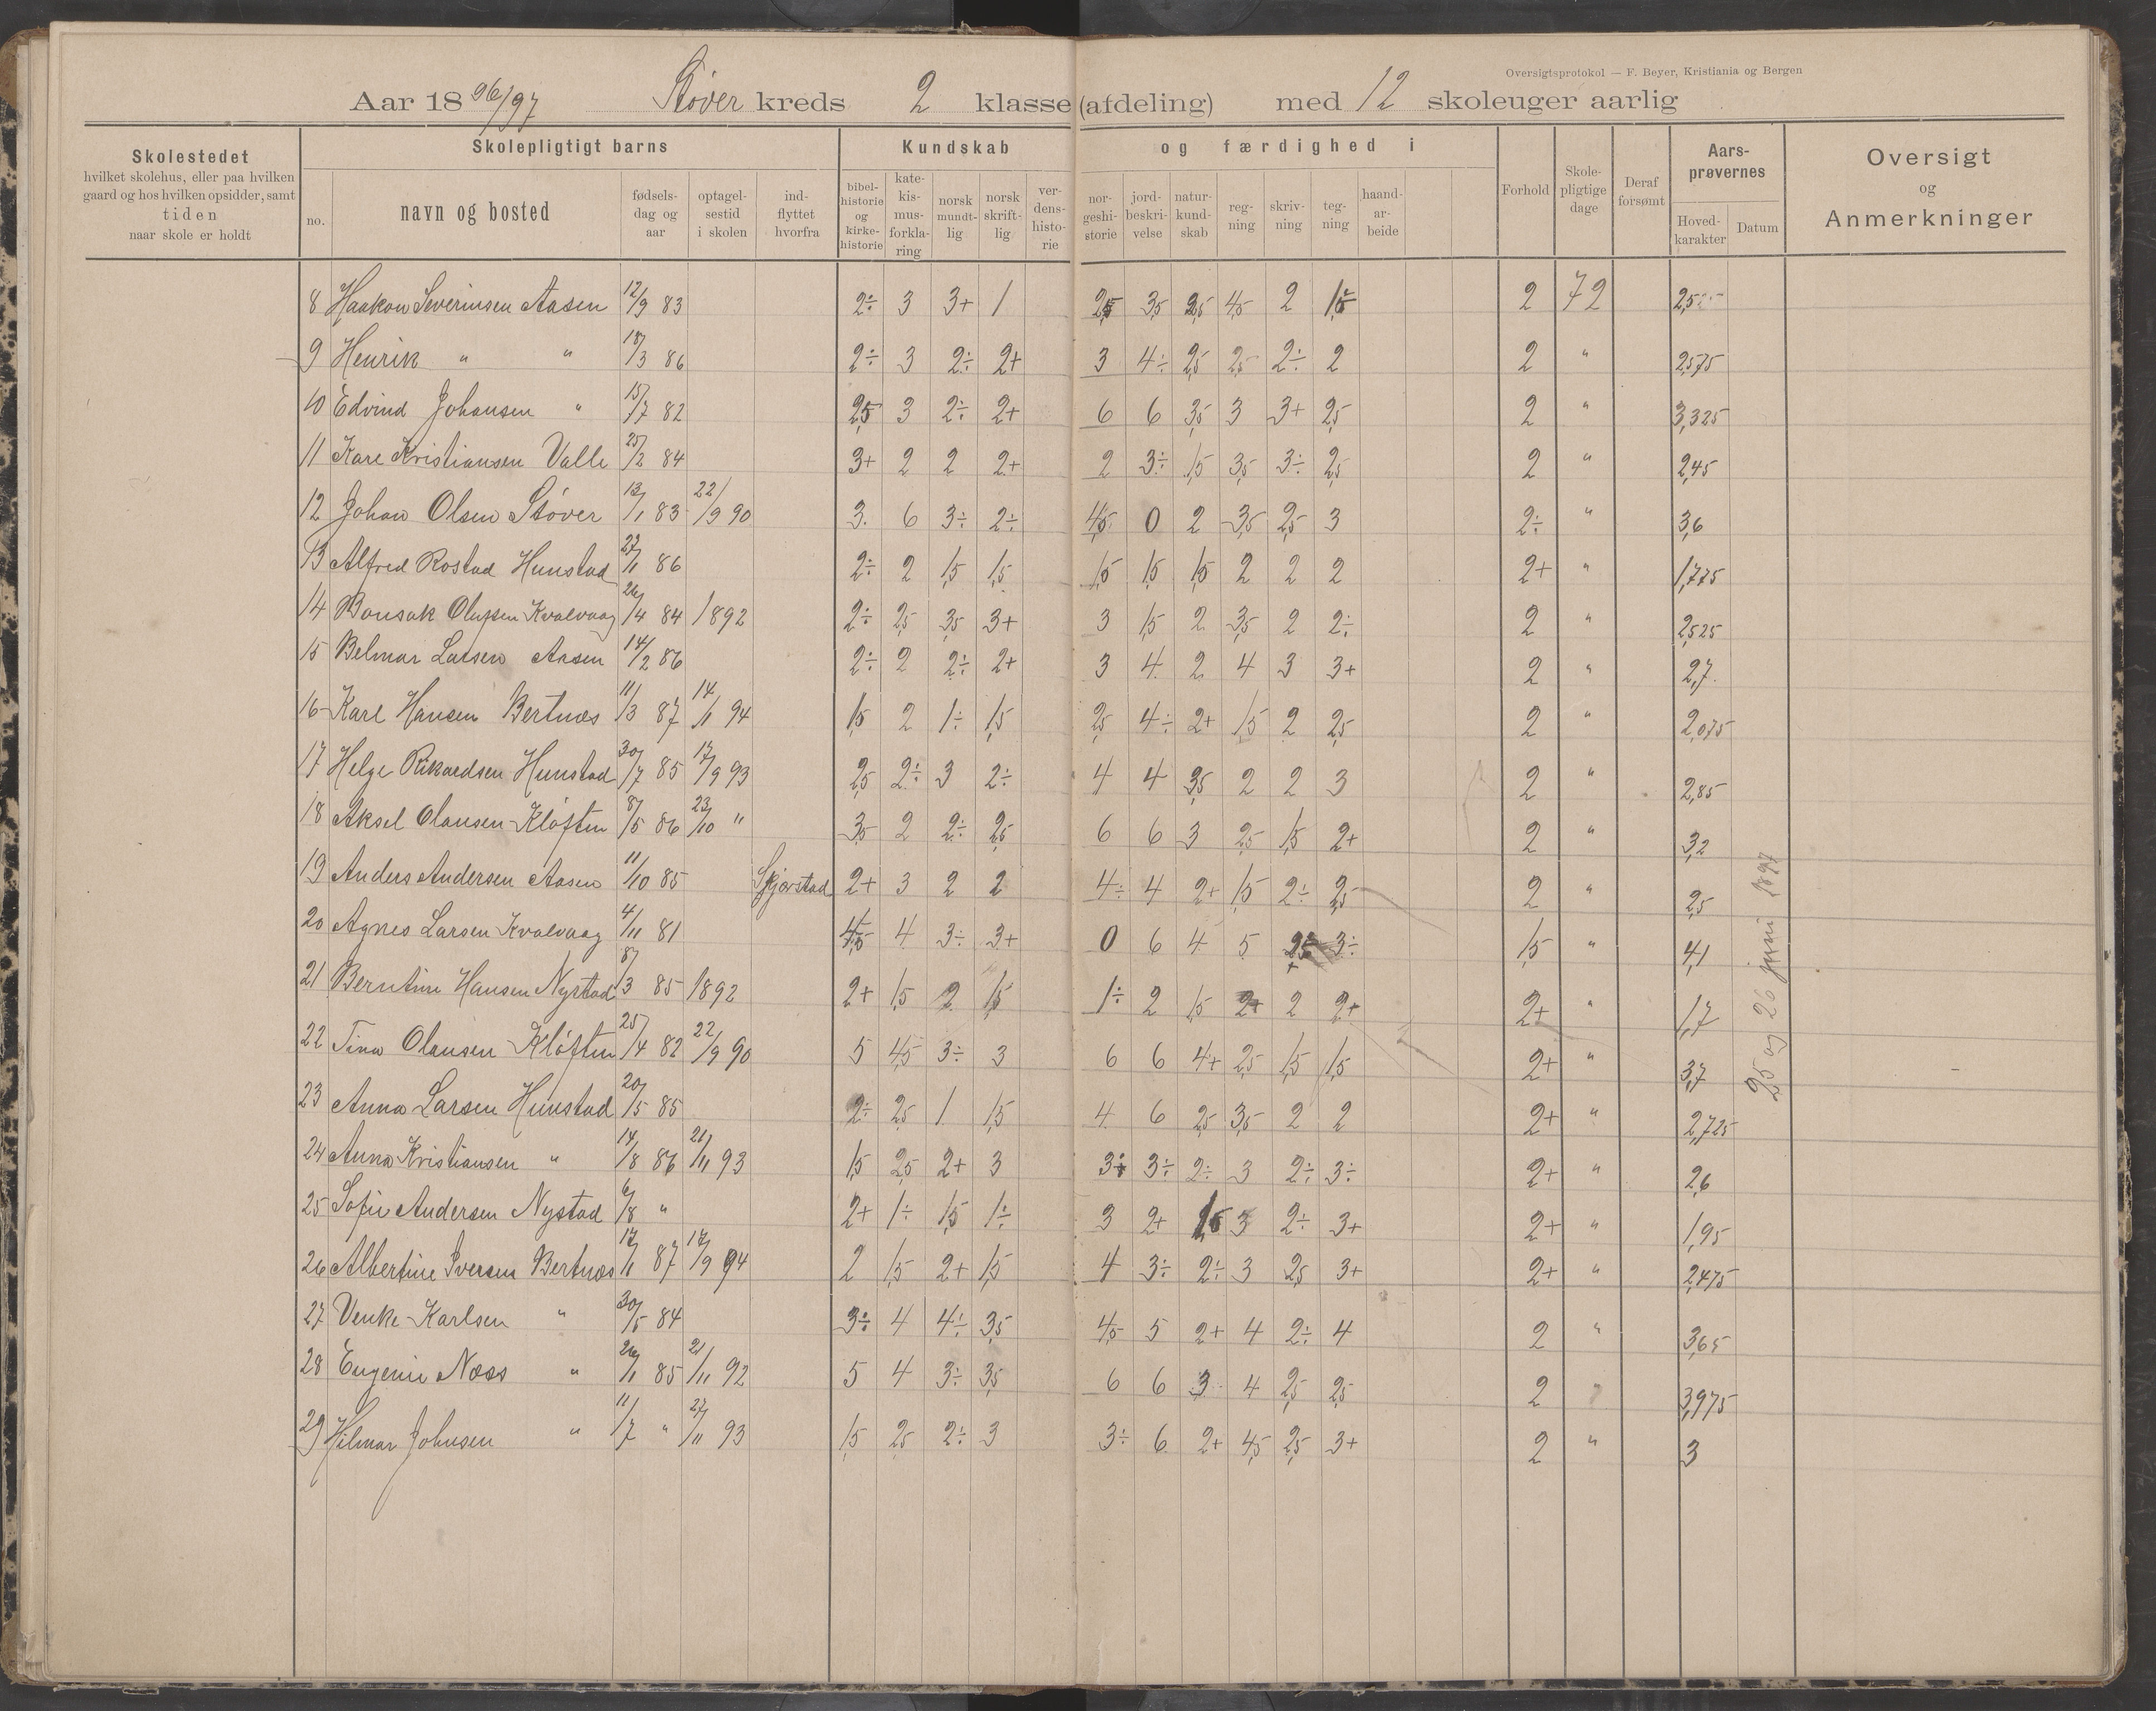 Oversigtsprotokol — F. Beyer, Kristiania og Bergen
Aar 1896/97 Støver kreds 2 klasse (afdeling) med 12 skoleuger aarlig
Skolestedet
hvilket skolehus, eller paa hvilken
gaard og hos hvilken opsidder, samt
tiden
naar skole er holdt
Skolepligtigt barns
no.
navn og bosted
fødsels-
dag og
aar
optagel-
sestid
i skolen
ind-
flyttet
hvorfra
Kundskab
bibel-
historie
og
kirke-
historie
kate-
kis-
mus-
forkla-
ring
norsk
mundt-
lig
norsk
skrift-
lig
ver-
dens-
histo-
rie
og færdighed i
nor-
geshi-
storie
jord-
beskri-
velse
natur-
kund-
skab
reg-
ning
skriv-
ning
teg-
ning
haand-
ar-
beide
Forhold
Skole-
pligtige
dage
Deraf
forsømt
Aars-
prøvernes
Hoved-
karakter
Datum
Oversigt
og
Anmerkninger
8 Haakon Severinsen Aasen 12/9 83 2÷ 3 3+ 1 2,5 3,5 2,5 4,5 2 1,5 2 72 2,5
9 Henrik " " 18/3 86 2÷ 3 2÷ 2+ 3 4÷ 2,5 2,5 2÷ 2 2 " 2,575
10 Edvind Johansen " 15/7 82 2,5 3 2÷ 2+ 6 6 3,5 3 3+ 2,5 2 " 3,325
11 Kare Kristiansen Valle 25/2 84 3+ 2 2 2+ 2 3÷ 1,5 3,5 3÷ 2,5 2 " 2,45
12 Johan Olsen Støver 13/1 83 22/9 90 3 6 3÷ 2÷ 4,5 0 2 3,5 2,5 3 2÷ " 3,6
13 Alfred Rostad Hunstad 27/1 86 2÷ 2 1,5 1,5 1,5 1,5 1,5 2 2 2 2+ " 1,775
14 Bonsak Olufsen Kvalvaag 26/4 84 1892 2÷ 2,5 3,5 3+ 3 1,5 2 3,5 2 2÷ 2 " 2,525
15 Belmar Larsen Aasen 14/2 86 2÷ 2 2÷ 2+ 3 4 2 4 3 3+ 2 " 2,7
16 Karl Hansen Bertnæs 11/3 87 14/11 94 1,5 2 1÷ 1,5 2,5 4÷ 2+ 1,5 2 2,5 2 " 2,075
17 Helge Rikardsen Hunstad 30/7 85 17/9 93 2,5 2÷ 3 2÷ 4 4 3,5 2 2 3 2 " 2,85
18 Aksel Olausen Kløften 8/5 86 23/10 " 3,5 2 2÷ 2,5 6 6 3 2,5 1,5 2+ 2 " 3,2
19 Anders Andersen Aasen 11/10 85 Skjerstad 2+ 3 2 2 4÷ 4 2+ 1,5 2÷ 2,5 2 " 2,5
20 Agnes Larsen Kvalvaag 4/11 81 4,5 4 3÷ 3+ 0 6 4 5 3÷ 1,5 " 4,1
21 Berntine Hansen Nystad 8/3 85 1892 2+ 1,5 2 1,5 1÷ 2 1,5 2+ 2 2+ 2+ " 1,7
22 Tina Olausen Kløften 25/4 82 22/9 90 5 4,5 3÷ 3 6 6 4+ 2,5 1,5 1,5 2+ " 3,7
23 Anna Larsen Hunstad 20/5 85 2÷ 2,5 1 1,5 4 6 2,5 3,5 2 2 2+ " 2,725
24 Anna Kristiansen " 14/8 86 21/11 93 1,5 2,5 2+ 3 3÷ 3÷ 2÷ 3 2÷ 3÷ 2+ " 2,6
25 Sofie Andersen Nystad 6/8 " 2+ 1÷ 1,5 1÷ 3 2+ 1,5 3 2÷ 3+ 2+ " 1,95
26 Albertine Iversen Bertnæs 17/1 87 17/9 94 2 1,5 2+ 1,5 4 3÷ 2÷ 3 2,5 3+ 2+ " 2,475
27 Venke Karlsen " 30/5 84 3÷ 4 4÷ 3,5 4,5 5 2+ 4 2÷ 4 2 " 3,65
28 Eugenie Næss " 26/1 85 21/11 92 5 4 3÷ 3,5 6 6 3 4 2,5 2,5 2 " 3,975
29 Hilmar Johnsen " 11/7 " 27/11 93 1,5 2,5 2÷ 3 3÷ 6 2+ 4,5 2,5 3+ 2 " 3
25 og 26 juni 1897